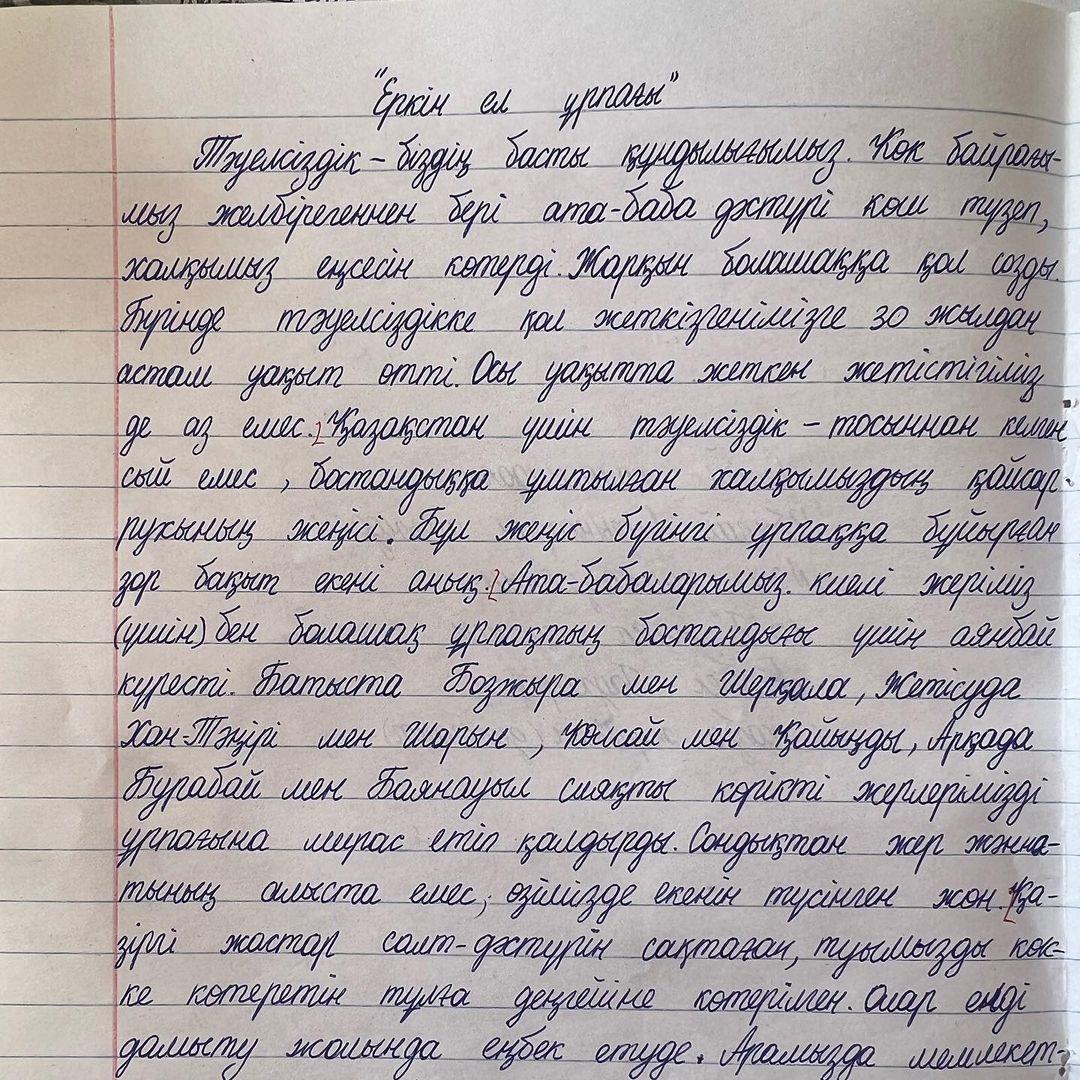 "Еркін ел ұрпағы"
Тәуелсіздік – біздің басты құндылығымыз. Көк байрағы-
мыз желбірегеннен бері ата-баба дәстүрі көш түзеп,
халқымыз еңсесін көтерді. Жарқын болашаққа қол созды.
Бүгінде тәуелсіздікке қол жеткізгенімізге 30 жылдан
астам уақыт өтті. Осы уақытта жеткен жетістігіміз
де аз емес. Қазақстан үшін тәуелсіздік – тосыннан келген
сый емес, бостандыққа ұмтылған халқымыздың қайсар
рухының жеңісі. Бұл жеңіс бүгінгі ұрпаққа бұйырған
зор бақыт екені анық. Ата-бабаларымыз. киелі жеріміз
(үшін) бен болашақ ұрпақтың бостандығы үшін аянбай
күресті. Батыста Бозжыра мен Шерқала, Жетісуда
Хан-Тәңірі мен Шарын, Көлсай мен Қайыңды, Арқада
Бурабай мен Баянауыл сияқты көрікті жерлерімізді
ұрпағына мирас етіп қалдырды. Сондықтан жер жәнна-
тының алыста емес, өзімізде екенін түсінген жөн. Қа-
зіргі жастар салт-дәстүрін сақтаған, туымызды көк-
ке көтеретін тұлға деңгейіне көтерілген. Олар елді
дамыту жолында еңбек етуде. Арамызда мемлекет-